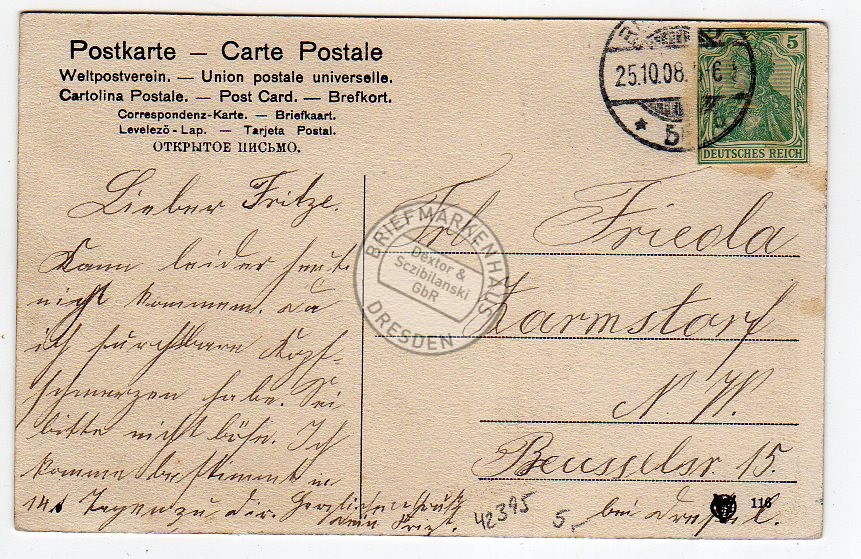 Postkarte — Carte Postale
Weltpostverein. — Union postale universelle.
Cartolina Postale. — Post Card. — Brefkort.
Correspondenz-Karte. — Briefkaart.
Levelező-Lap. — Tarjeta Postal.
ОТКРЫТОЕ ПИСЬМО.
25.10.08.
5
DEUTSCHES REICH
Lieber Fritze.
Kann leider heute
nicht kommen. Da
ich furchtbare Kopf-
schmerzen habe. Sei
bitte nicht böse. Ich
komme bestimmt in
14 Tagen zu dir. Herzlichen Gruß
Dein
Frl. Frieda
Zarmstorf
N. W.
Beusselstr 15.
bei
42395
5.-
116
BRIEFMARKENHAUS
Dextor &
Sczibilanski
GbR
DRESDEN